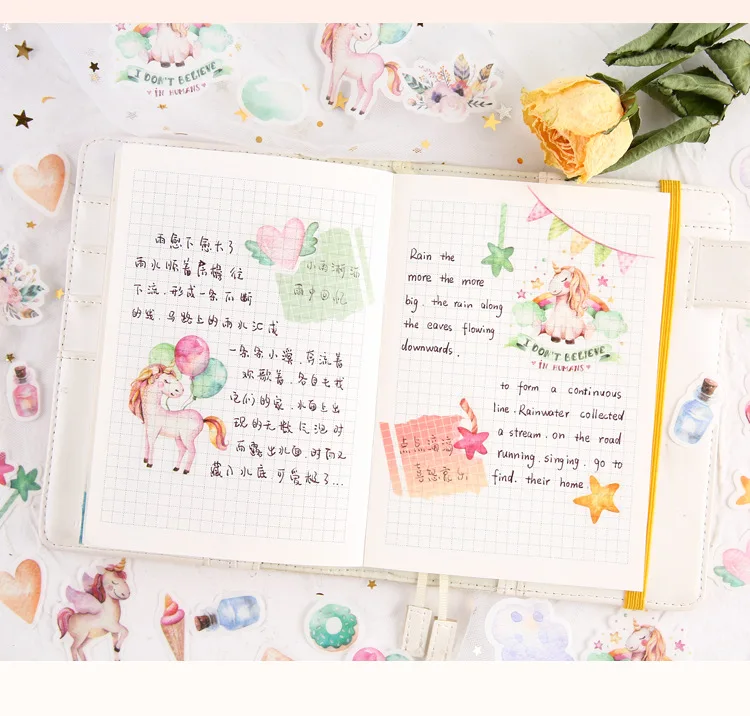 I DON'T BELIEVE
IN HUMANS
雨愈下愈大了
雨水顺着房檐往
下流.形成一条不断
的线.马路上的雨水汇成
一条条小溪.奔流着
欢歌着.各自去找
它们的家.水面上出
现的无数气泡时
而露出水面.时而又
藏入水底 可爱极了...
小雨淅沥
雨中回忆
Rain the
more the more
big . the rain along
the eaves flowing
downwards .
I DON'T BELIEVE
IN HUMANS
to form a continuous
line . Rainwater collected
a stream . on the road
running . singing . go to
find . their home .
点点滴滴
喜怒哀乐